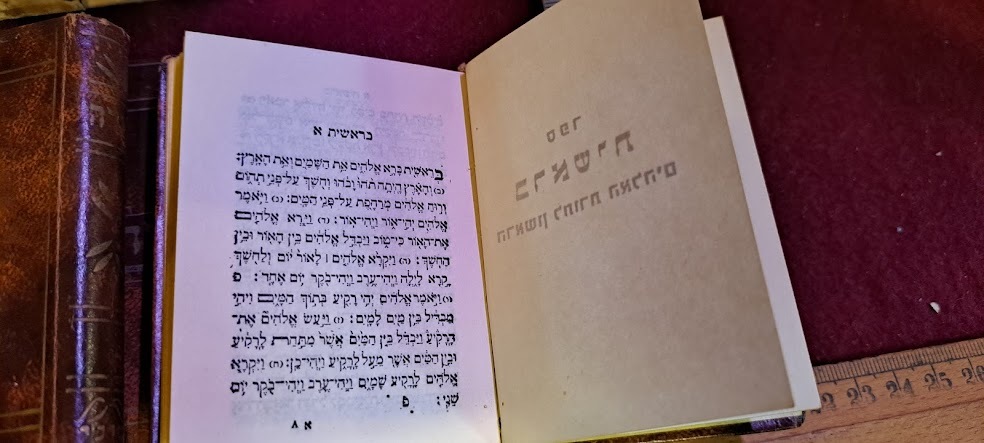 ספר
בראשית
הראשון לתורת האלהים
בראשית א
בְּרֵאשִׁית בָּרָא אֱלֹהִים אֵת הַשָּׁמַיִם וְאֵת הָאָרֶץ:
(ב) וְהָאָרֶץ הָיְתָה תֹהוּ וָבֹהוּ וְחֹשֶׁךְ עַל־פְּנֵי תְהוֹם
וְרוּחַ אֱלֹהִים מְרַחֶפֶת עַל־פְּנֵי הַמָּיִם: (ג) וַיֹּאמֶר
אֱלֹהִים יְהִי־אוֹר וַיְהִי־אוֹר: (ד) וַיַּרְא אֱלֹהִים
אֶת־הָאוֹר כִּי־טוֹב וַיַּבְדֵּל אֱלֹהִים בֵּין הָאוֹר וּבֵין
הַחֹשֶׁךְ: (ה) וַיִּקְרָא אֱלֹהִים ׀ לָאוֹר יוֹם וְלַחֹשֶׁךְ
קָרָא לָיְלָה וַיְהִי־עֶרֶב וַיְהִי־בֹקֶר יוֹם אֶחָד: פ
(ו) וַיֹּאמֶר אֱלֹהִים יְהִי רָקִיעַ בְּתוֹךְ הַמָּיִם וִיהִי
מַבְדִּיל בֵּין מַיִם לָמָיִם: (ז) וַיַּעַשׂ אֱלֹהִים אֶת־
הָרָקִיעַ וַיַּבְדֵּל בֵּין הַמַּיִם אֲשֶׁר מִתַּחַת לָרָקִיעַ
וּבֵין הַמַּיִם אֲשֶׁר מֵעַל לָרָקִיעַ וַיְהִי־כֵן: (ח) וַיִּקְרָא
אֱלֹהִים לָרָקִיעַ שָׁמָיִם וַיְהִי־עֶרֶב וַיְהִי־בֹקֶר יוֹם
שֵׁנִי: פ
א 8
23 24 25 26